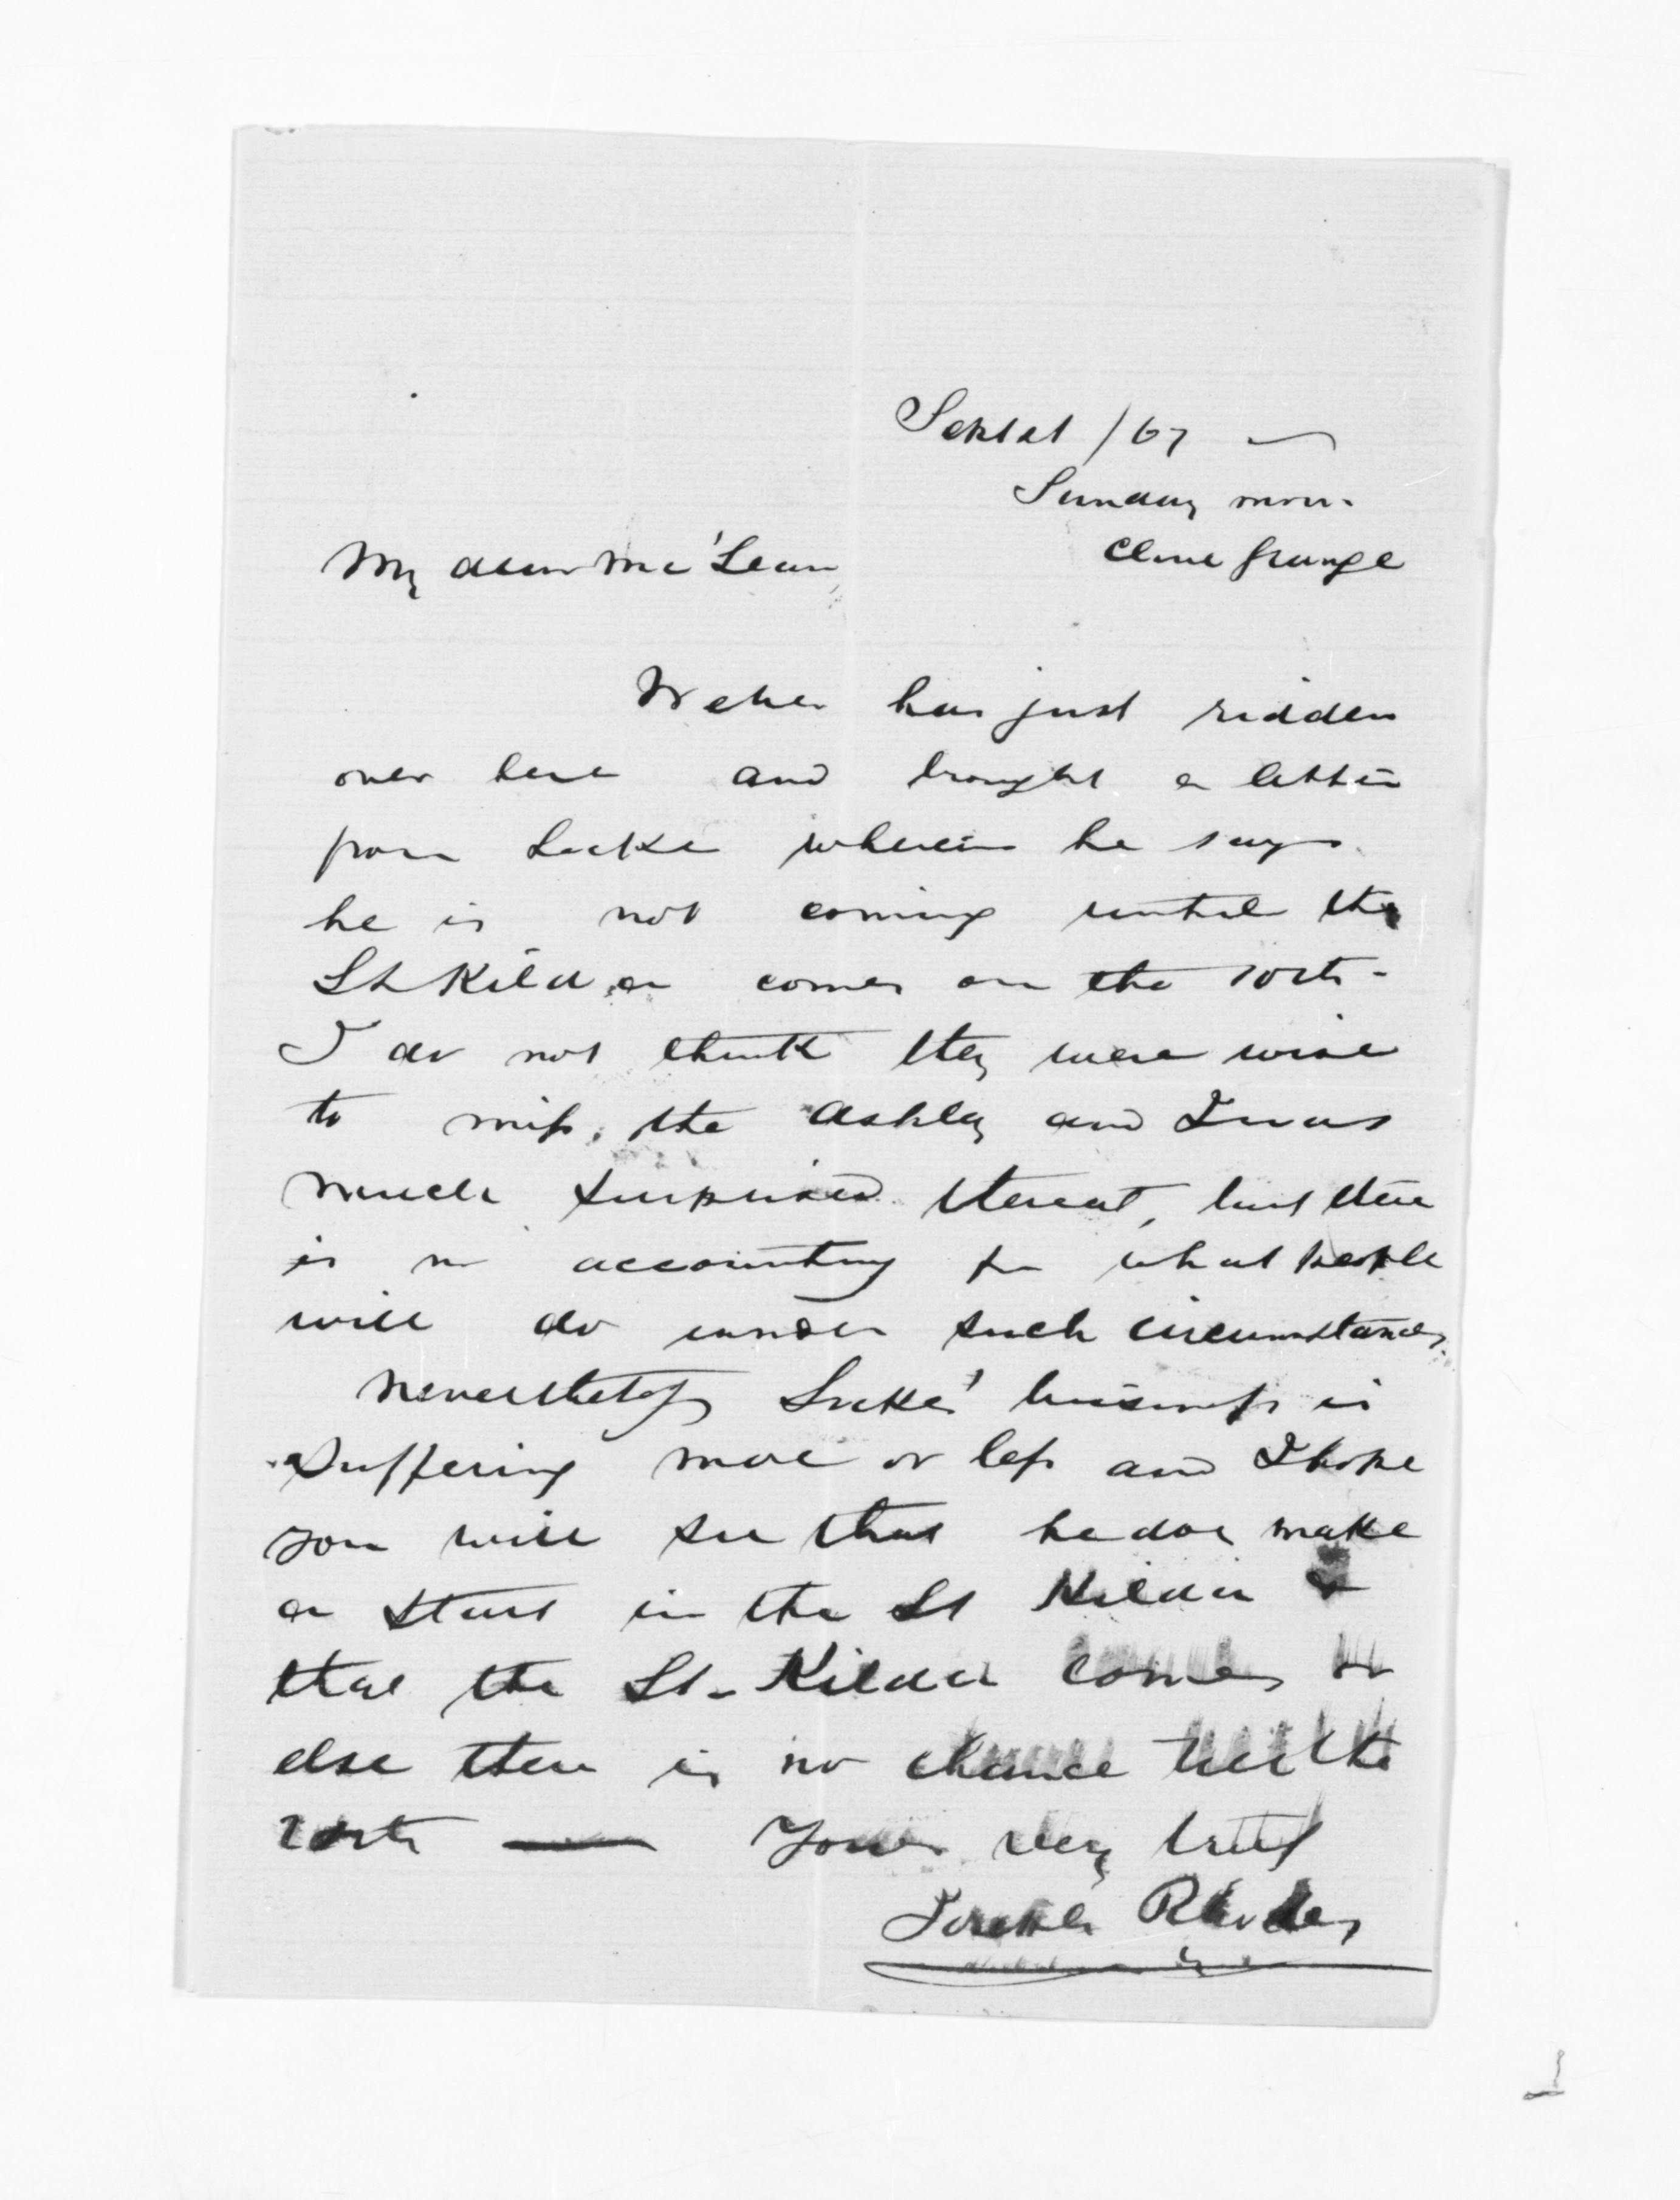 Sept 1st /67 —
Sunday morn.
Clive Grange
My dear McLean,
Weber has just ridden
over here and brought a letter
from Locke wherein he says
he is not coming until the
St Kilda comes on the 10th -
I do not think they were wise
to miss the Ashley and I was
much surprised thereat, but there
is no accounting for what people
will do under such circumstances.
Nevertheless Locke's business is
suffering more or less and I hope
you will see that he does make
a start in the St Kilda &
that the St. Kilda comes or
else there is no chance till the
20th — Yours very truly
Joseph Rhodes
1